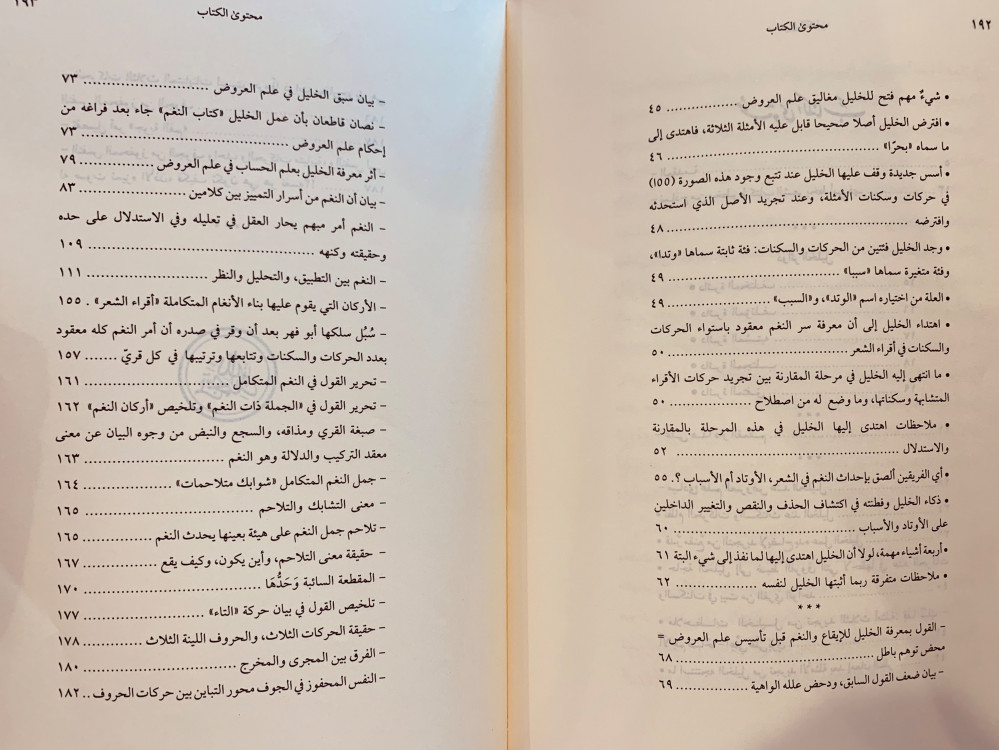 ١٩٢
محتوى الكتاب
• شيءٌ مهم فتح للخليل مغاليق علم العروض .................. ٤٥
• افترض الخليل أصلا صحيحا قابل عليه الأمثلة الثلاثة، فاهتدى إلى
ما سماه «بحرًا» .................. ٤٦
• أسس جديدة وقف عليها الخليل عند تتبع وجود هذه الصورة (١٥٥)
في حركات وسكنات الأمثلة، وعند تجريد الأصل الذي استحدثه
وافترضه .................. ٤٨
• وجد الخليل فئتين من الحركات والسكنات: فئة ثابتة سماها «وتدا»،
وفئة متغيرة سماها «سببا» .................. ٤٩
• العلة من اختياره اسم «الوتد»، و«السبب» .................. ٤٩
• اهتداء الخليل إلى أن معرفة سر النغم معقود باستواء الحركات
والسكنات في أقراء الشعر .................. ٥٠
• ما انتهى إليه الخليل في مرحلة المقارنة بين تجريد حركات الأقراء
المتشابهة وسكناتها، وما وضع له من اصطلاح .................. ٥٠
• ملاحظات اهتدى إليها الخليل في هذه المرحلة بالمقارنة
والاستدلال .................. ٥٢
• أي الفريقين ألصق بإحداث النغم في الشعر، الأوتاد أم الأسباب ؟. ٥٥
• ذكاء الخليل وفطنته في اكتشاف الحذف والنقص والتغيير الداخلين
على الأوتاد والأسباب .................. ٦٠
• أربعة أشياء مهمة، لولا أن الخليل اهتدى إليها لما نفذ إلى شيء البتة ٦١
• ملاحظات متفرقة ربما أثبتها الخليل لنفسه .................. ٦٢
***
– القول بمعرفة الخليل للإيقاع والنغم قبل تأسيس علم العروض =
محض توهم باطل .................. ٦٨
– بيان ضعف القول السابق، ودحض علله الواهية .................. ٦٩
١٩٣
محتوى الكتاب
– بيان سبق الخليل في علم العروض .................. ٧٣
– نصان قاطعان بأن عمل الخليل «كتاب النغم» جاء بعد فراغه من
إحكام علم العروض .................. ٧٣
– أثر معرفة الخليل بعلم الحساب في علم العروض .................. ٧٩
– بيان أن النغم من أسرار التمييز بين كلامين .................. ٨٣
– النغم أمر مبهم يحار العقل في تعليله وفي الاستدلال على حده
وحقيقته وكنهه .................. ١٠٩
– النغم بين التطبيق، والتحليل والنظر .................. ١١١
– الأركان التي يقوم عليها بناء الأنغام المتكاملة «أقراء الشعر» . ١٥٥
– سُبُل سلكها أبو فهر بعد أن وقر في صدره أن أمر النغم كله معقود
بعدد الحركات والسكنات وتتابعها وترتيبها في كل قريّ ....... ١٥٧
– تحرير القول في النغم المتكامل .................. ١٦١
– تحرير القول في «الجملة ذات النغم» وتلخيص «أركان النغم» ١٦٢
– صبغة القري ومذاقه، والسجع والنبض من وجوه البيان عن معنى
معقد التركيب والدلالة وهو النغم .................. ١٦٣
– جمل النغم المتكامل «شوابك متلاحمات» .................. ١٦٤
– معنى التشابك والتلاحم .................. ١٦٥
– تلاحم جمل النغم على هيئة بعينها يحدث النغم .................. ١٦٥
– حقيقة معنى التلاحم، وأين يكون، وكيف يقع .................. ١٦٧
– المقطعة السائبة وَحَدُّهَا .................. ١٧٠
– تلخيص القول في بيان حركة «التاء» .................. ١٧٧
– حقيقة الحركات الثلاث، والحروف اللينة الثلاث .................. ١٧٨
– الفرق بين المجرى والمخرج .................. ١٨٠
– النفس المحفوز في الجوف محور التباين بين حركات الحروف .. ١٨٢